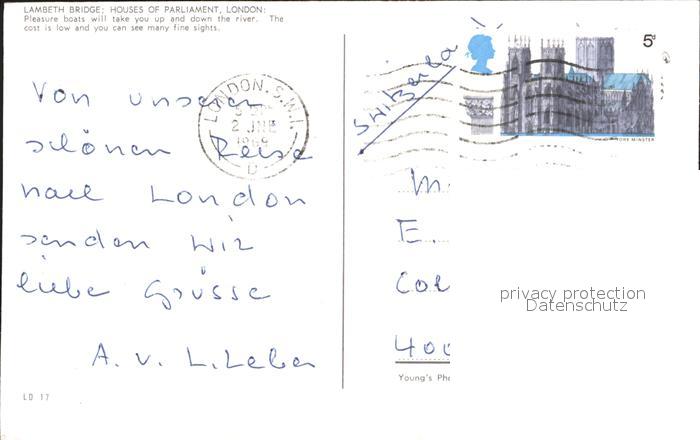 LAMBETH BRIDGE; HOUSES OF PARLIAMENT, LONDON:
Pleasure boats will take you up and down the river. The
cost is low and you can see many fine sights.
Von unserer
schönen Reise
nach London
senden wir
liebe Grüsse
A. v. L. Leber
LD 17
LONDON. S.W.1.
2 JNE
1969
D
5d
YORK MINSTER
Switzerland
M.
E.
Col
400
Young's Pho
privacy protection
Datenschutz